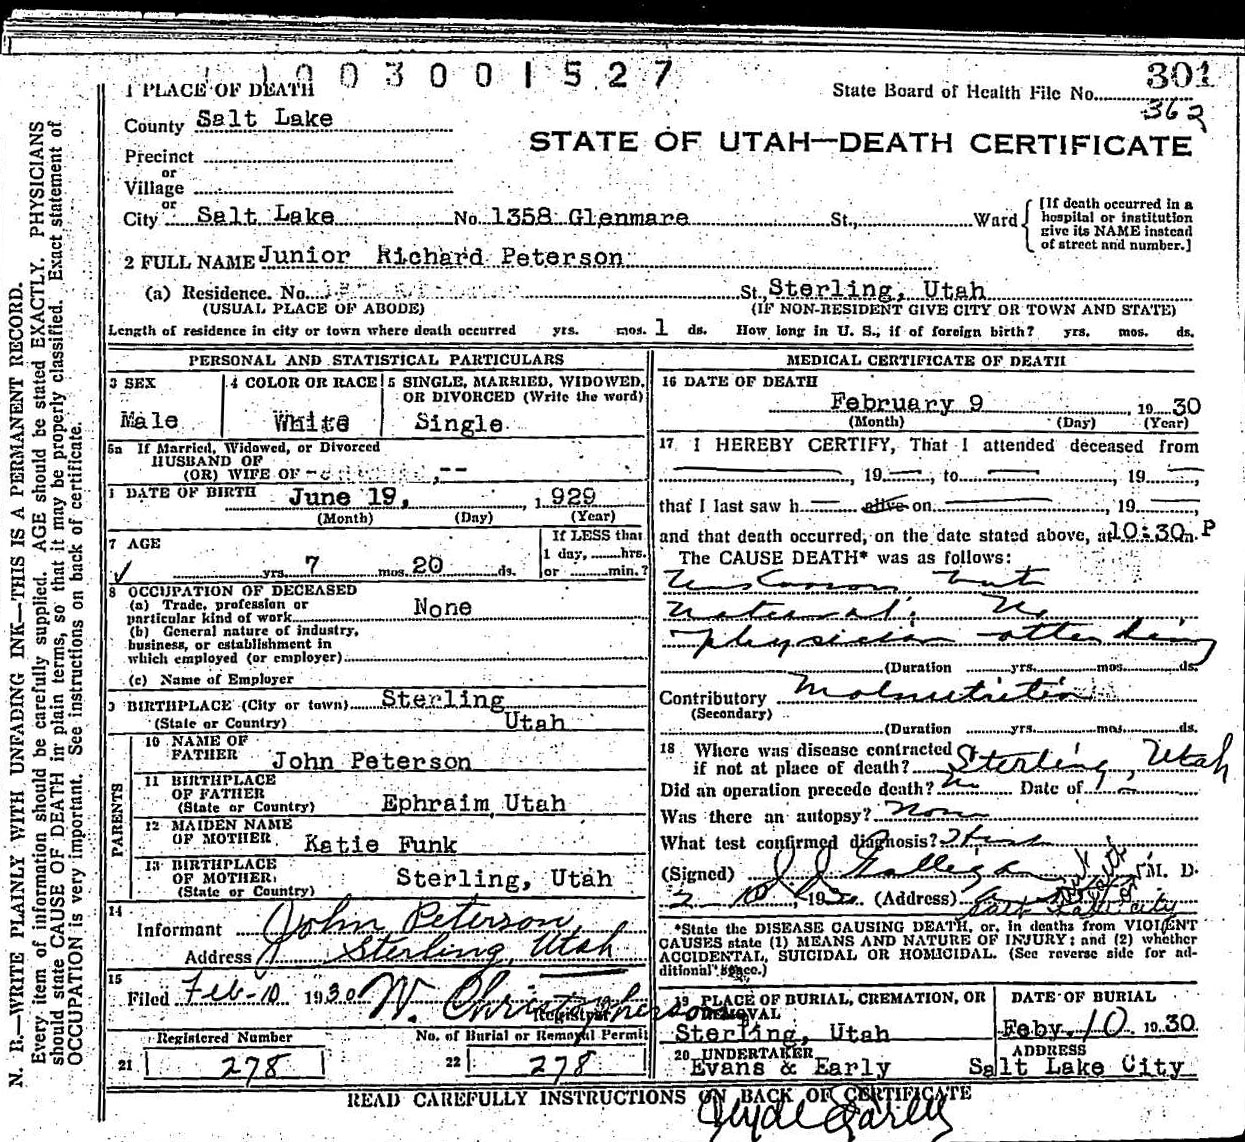 1003001527
301
1 PLACE OF DEATH
State Board of Health File No.
362
County Salt Lake
STATE OF UTAH—DEATH CERTIFICATE
Precinct
or
Village
or
City Salt Lake No. 1358 Glenmare St., Ward
[If death occurred in a
hospital or institution
give its NAME instead
of street and number.]
2 FULL NAME Junior Richard Peterson
(a) Residence. No. St. Sterling, Utah
(USUAL PLACE OF ABODE) (IF NON-RESIDENT GIVE CITY OR TOWN AND STATE)
Length of residence in city or town where death occurred yrs. mos. 1 ds. How long in U. S., if of foreign birth? yrs. mos. ds.
PERSONAL AND STATISTICAL PARTICULARS
3 SEX
Male
4 COLOR OR RACE
White
5 SINGLE, MARRIED, WIDOWED,
OR DIVORCED (Write the word)
Single
5a If Married, Widowed, or Divorced
HUSBAND OF
(OR) WIFE OF
DATE OF BIRTH June 19, 1929
(Month) (Day) (Year)
7 AGE
yrs. 7 mos. 20 ds.
If LESS than
1 day, hrs.
or min.?
8 OCCUPATION OF DECEASED
(a) Trade, profession or
particular kind of work None
(b) General nature of industry,
business, or establishment in
which employed (or employer)
(c) Name of Employer
9 BIRTHPLACE (City or town) Sterling
(State or Country) Utah
PARENTS
10 NAME OF
FATHER John Peterson
11 BIRTHPLACE
OF FATHER
(State or Country) Ephraim, Utah
12 MAIDEN NAME
OF MOTHER Katie Funk
13 BIRTHPLACE
OF MOTHER
(State or Country) Sterling, Utah
14
Informant John Peterson
Address Sterling, Utah
15
Filed Feb-10 1930 W. Christopherson
Registrar
Registered Number
21 278
No. of Burial or Removal Permit
22 278
MEDICAL CERTIFICATE OF DEATH
16 DATE OF DEATH
February 9, 1930
(Month) (Day) (Year)
17 I HEREBY CERTIFY, That I attended deceased from
, 19 , to , 19 ,
that I last saw h alive on , 19 ,
and that death occurred, on the date stated above, at 10:30 m. P
The CAUSE DEATH* was as follows:
Unknown but
natural. No
physician attending
(Duration yrs. mos. ds.
Contributory Malnutrition
(Secondary)
(Duration yrs. mos. ds.
18 Where was disease contracted
if not at place of death? Sterling, Utah
Did an operation precede death? no Date of
Was there an autopsy?
What test confirmed diagnosis?
(Signed) M. D.
2-10, 1930 (Address) Salt Lake City
*State the DISEASE CAUSING DEATH, or, in deaths from VIOLENT
CAUSES state (1) MEANS AND NATURE OF INJURY; and (2) whether
ACCIDENTAL, SUICIDAL OR HOMICIDAL. (See reverse side for ad-
ditional space.)
19 PLACE OF BURIAL, CREMATION, OR
REMOVAL
Sterling, Utah
DATE OF BURIAL
Feby. 10 1930
20 UNDERTAKER
Evans & Early
ADDRESS
Salt Lake City
READ CAREFULLY INSTRUCTIONS ON BACK OF CERTIFICATE
Clyde Early
N. B.—WRITE PLAINLY WITH UNFADING INK—THIS IS A PERMANENT RECORD.
Every item of information should be carefully supplied. AGE should be stated EXACTLY. PHYSICIANS
should state CAUSE OF DEATH in plain terms, so that it may be properly classified. Exact statement of
OCCUPATION is very important. See instructions on back of certificate.